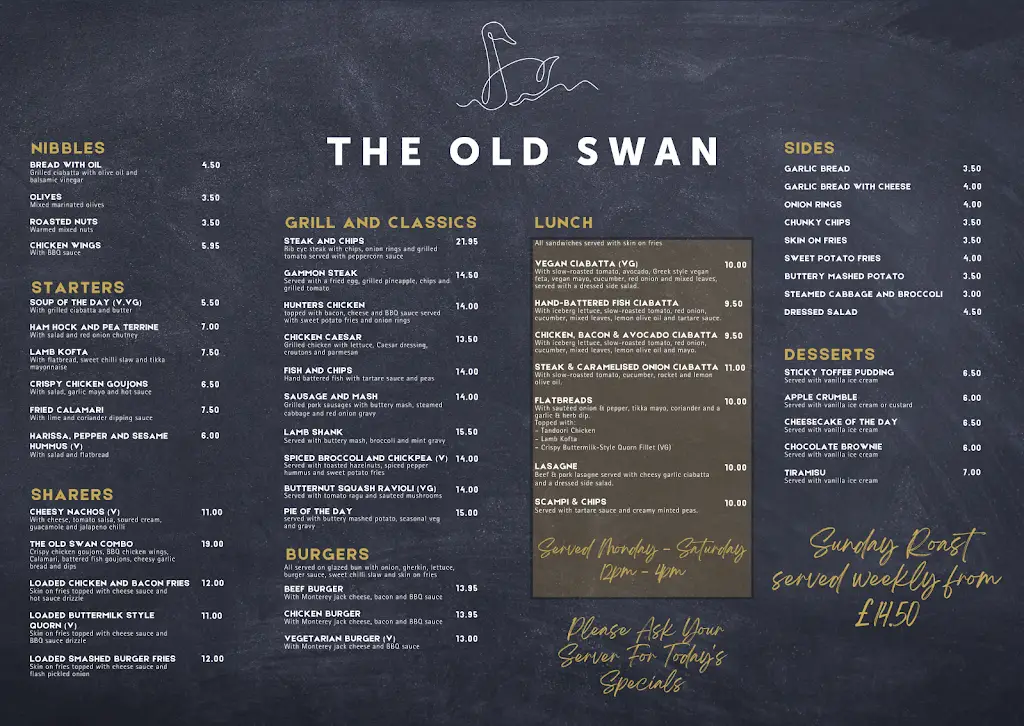 THE OLD SWAN
NIBBLES
BREAD WITH OIL 4.50
Grilled ciabatta with olive oil and
balsamic vinegar
OLIVES 3.50
Mixed marinated olives
ROASTED NUTS 3.50
Warmed mixed nuts
CHICKEN WINGS 5.95
With BBQ sauce
STARTERS
SOUP OF THE DAY (V.VG) 5.50
With grilled ciabatta and butter
HAM HOCK AND PEA TERRINE 7.00
With salad and red onion chutney
LAMB KOFTA 7.50
With flatbread, sweet chilli slaw and tikka
mayonnaise
CRISPY CHICKEN GOUJONS 6.50
With salad, garlic mayo and hot sauce
FRIED CALAMARI 7.50
With lime and coriander dipping sauce
HARISSA, PEPPER AND SESAME 6.00
HUMMUS (V)
With salad and flatbread
SHARERS
CHEESY NACHOS (V) 11.00
With cheese, tomato salsa, soured cream,
guacamole and jalapeno chilli
THE OLD SWAN COMBO 19.00
Crispy chicken goujons, BBQ chicken wings,
Calamari, battered fish goujons, cheesy garlic
bread and dips
LOADED CHICKEN AND BACON FRIES 12.00
Skin on fries topped with cheese sauce and
hot sauce drizzle
LOADED BUTTERMILK STYLE 11.00
QUORN (V)
Skin on fries topped with cheese sauce and
BBQ sauce drizzle
LOADED SMASHED BURGER FRIES 12.00
Skin on fries topped with cheese sauce and
flash pickled onion
GRILL AND CLASSICS
STEAK AND CHIPS 21.95
Rib eye steak with chips, onion rings and grilled
tomato served with peppercorn sauce
GAMMON STEAK 14.50
Served with a fried egg, grilled pineapple, chips and
grilled tomato
HUNTERS CHICKEN 14.00
topped with bacon, cheese and BBQ sauce served
with sweet potato fries and onion rings
CHICKEN CAESAR 13.50
Grilled chicken with lettuce, Caesar dressing,
croutons and parmesan
FISH AND CHIPS 14.00
Hand battered fish with tartare sauce and peas
SAUSAGE AND MASH 14.00
Grilled pork sausages with buttery mash, steamed
cabbage and red onion gravy
LAMB SHANK 15.50
Served with buttery mash, broccoli and mint gravy
SPICED BROCCOLI AND CHICKPEA (V) 14.00
Served with toasted hazelnuts, spiced pepper
hummus and sweet potato fries
BUTTERNUT SQUASH RAVIOLI (VG) 14.00
Served with tomato ragu and sauteed mushrooms
PIE OF THE DAY 15.00
served with buttery mashed potato, seasonal veg
and gravy
BURGERS
All served on glazed bun with onion, gherkin, lettuce,
burger sauce, sweet chilli slaw and skin on fries
BEEF BURGER 13.95
With Monterey jack cheese, bacon and BBQ sauce
CHICKEN BURGER 13.95
With Monterey jack cheese, bacon and BBQ sauce
VEGETARIAN BURGER (V) 13.00
With Monterey jack cheese and BBQ sauce
LUNCH
All sandwiches served with skin on fries
VEGAN CIABATTA (VG) 10.00
With slow-roasted tomato, avocado, Greek style vegan
feta, vegan mayo, cucumber, red onion and mixed leaves,
served with a dressed side salad.
HAND-BATTERED FISH CIABATTA 9.50
With iceberg lettuce, slow-roasted tomato, red onion,
cucumber, mixed leaves, lemon olive oil and tartare sauce.
CHICKEN, BACON & AVOCADO CIABATTA 9.50
With iceberg lettuce, slow-roasted tomato, red onion,
cucumber, mixed leaves, lemon olive oil and mayo.
STEAK & CARAMELISED ONION CIABATTA 11.00
With slow-roasted tomato, cucumber, rocket and lemon
olive oil.
FLATBREADS 10.00
With sautéed onion & pepper, tikka mayo, coriander and a
garlic & herb dip.
Topped with:
- Tandoori Chicken
- Lamb Kofta
- Crispy Buttermilk-Style Quorn Fillet (VG)
LASAGNE 10.00
Beef & pork lasagne served with cheesy garlic ciabatta
and a dressed side salad.
SCAMPI & CHIPS 10.00
Served with tartare sauce and creamy minted peas.
Served Monday - Saturday
12pm - 4pm
Please Ask Your
Server For Today's
Specials
SIDES
GARLIC BREAD 3.50
GARLIC BREAD WITH CHEESE 4.00
ONION RINGS 4.00
CHUNKY CHIPS 3.50
SKIN ON FRIES 3.50
SWEET POTATO FRIES 4.00
BUTTERY MASHED POTATO 3.50
STEAMED CABBAGE AND BROCCOLI 3.00
DRESSED SALAD 4.50
DESSERTS
STICKY TOFFEE PUDDING 6.50
Served with vanilla ice cream
APPLE CRUMBLE 6.00
Served with vanilla ice cream or custard
CHEESECAKE OF THE DAY 6.50
Served with vanilla ice cream
CHOCOLATE BROWNIE 6.00
Served with vanilla ice cream
TIRAMISU 7.00
Served with vanilla ice cream
Sunday Roast
served weekly from
£14.50